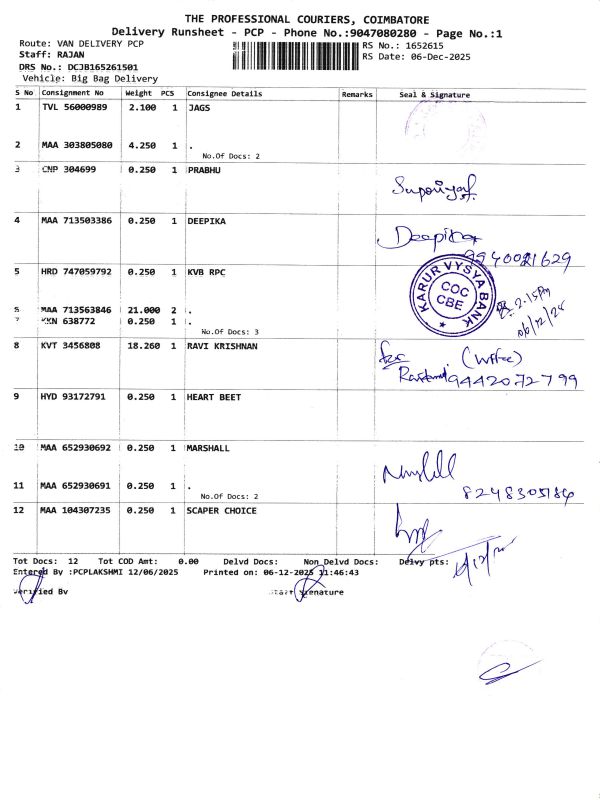 THE PROFESSIONAL COURIERS, COIMBATORE
Delivery Runsheet - PCP - Phone No.:9047080280 - Page No.:1
Route: VAN DELIVERY PCP
RS No.: 1652615
Staff: RAJAN
RS Date: 06-Dec-2025
DRS No.: DCJB165261501
Vehicle: Big Bag Delivery
S No Consignment No Weight PCS Consignee Details Remarks Seal & Signature
1 TVL 56000989 2.100 1 JAGS
2 MAA 303805080 4.250 1 .
No.Of Docs: 2
3 CNP 304699 0.250 1 PRABHU
4 MAA 713503386 0.250 1 DEEPIKA
Deepika
5 HRD 747059792 0.250 1 KVB RPC
KARUR VYSYA BANK
COC
CBE
2.15pm
6 MAA 713563846 21.000 2 .
7 KKN 638772 0.250 1 .
No.Of Docs: 3
8 KVT 3456808 18.260 1 RAVI KRISHNAN
for (Wife)
9442072799
9 HYD 93172791 0.250 1 HEART BEET
10 MAA 652930692 0.250 1 MARSHALL
11 MAA 652930691 0.250 1 .
No.Of Docs: 2
8248305184
12 MAA 104307235 0.250 1 SCAPER CHOICE
Tot Docs: 12 Tot COD Amt: 0.00 Delvd Docs: Non Delvd Docs: Delvy pts:
Entered By :PCPLAKSHMI 12/06/2025 Printed on: 06-12-2025 11:46:43
Verified By